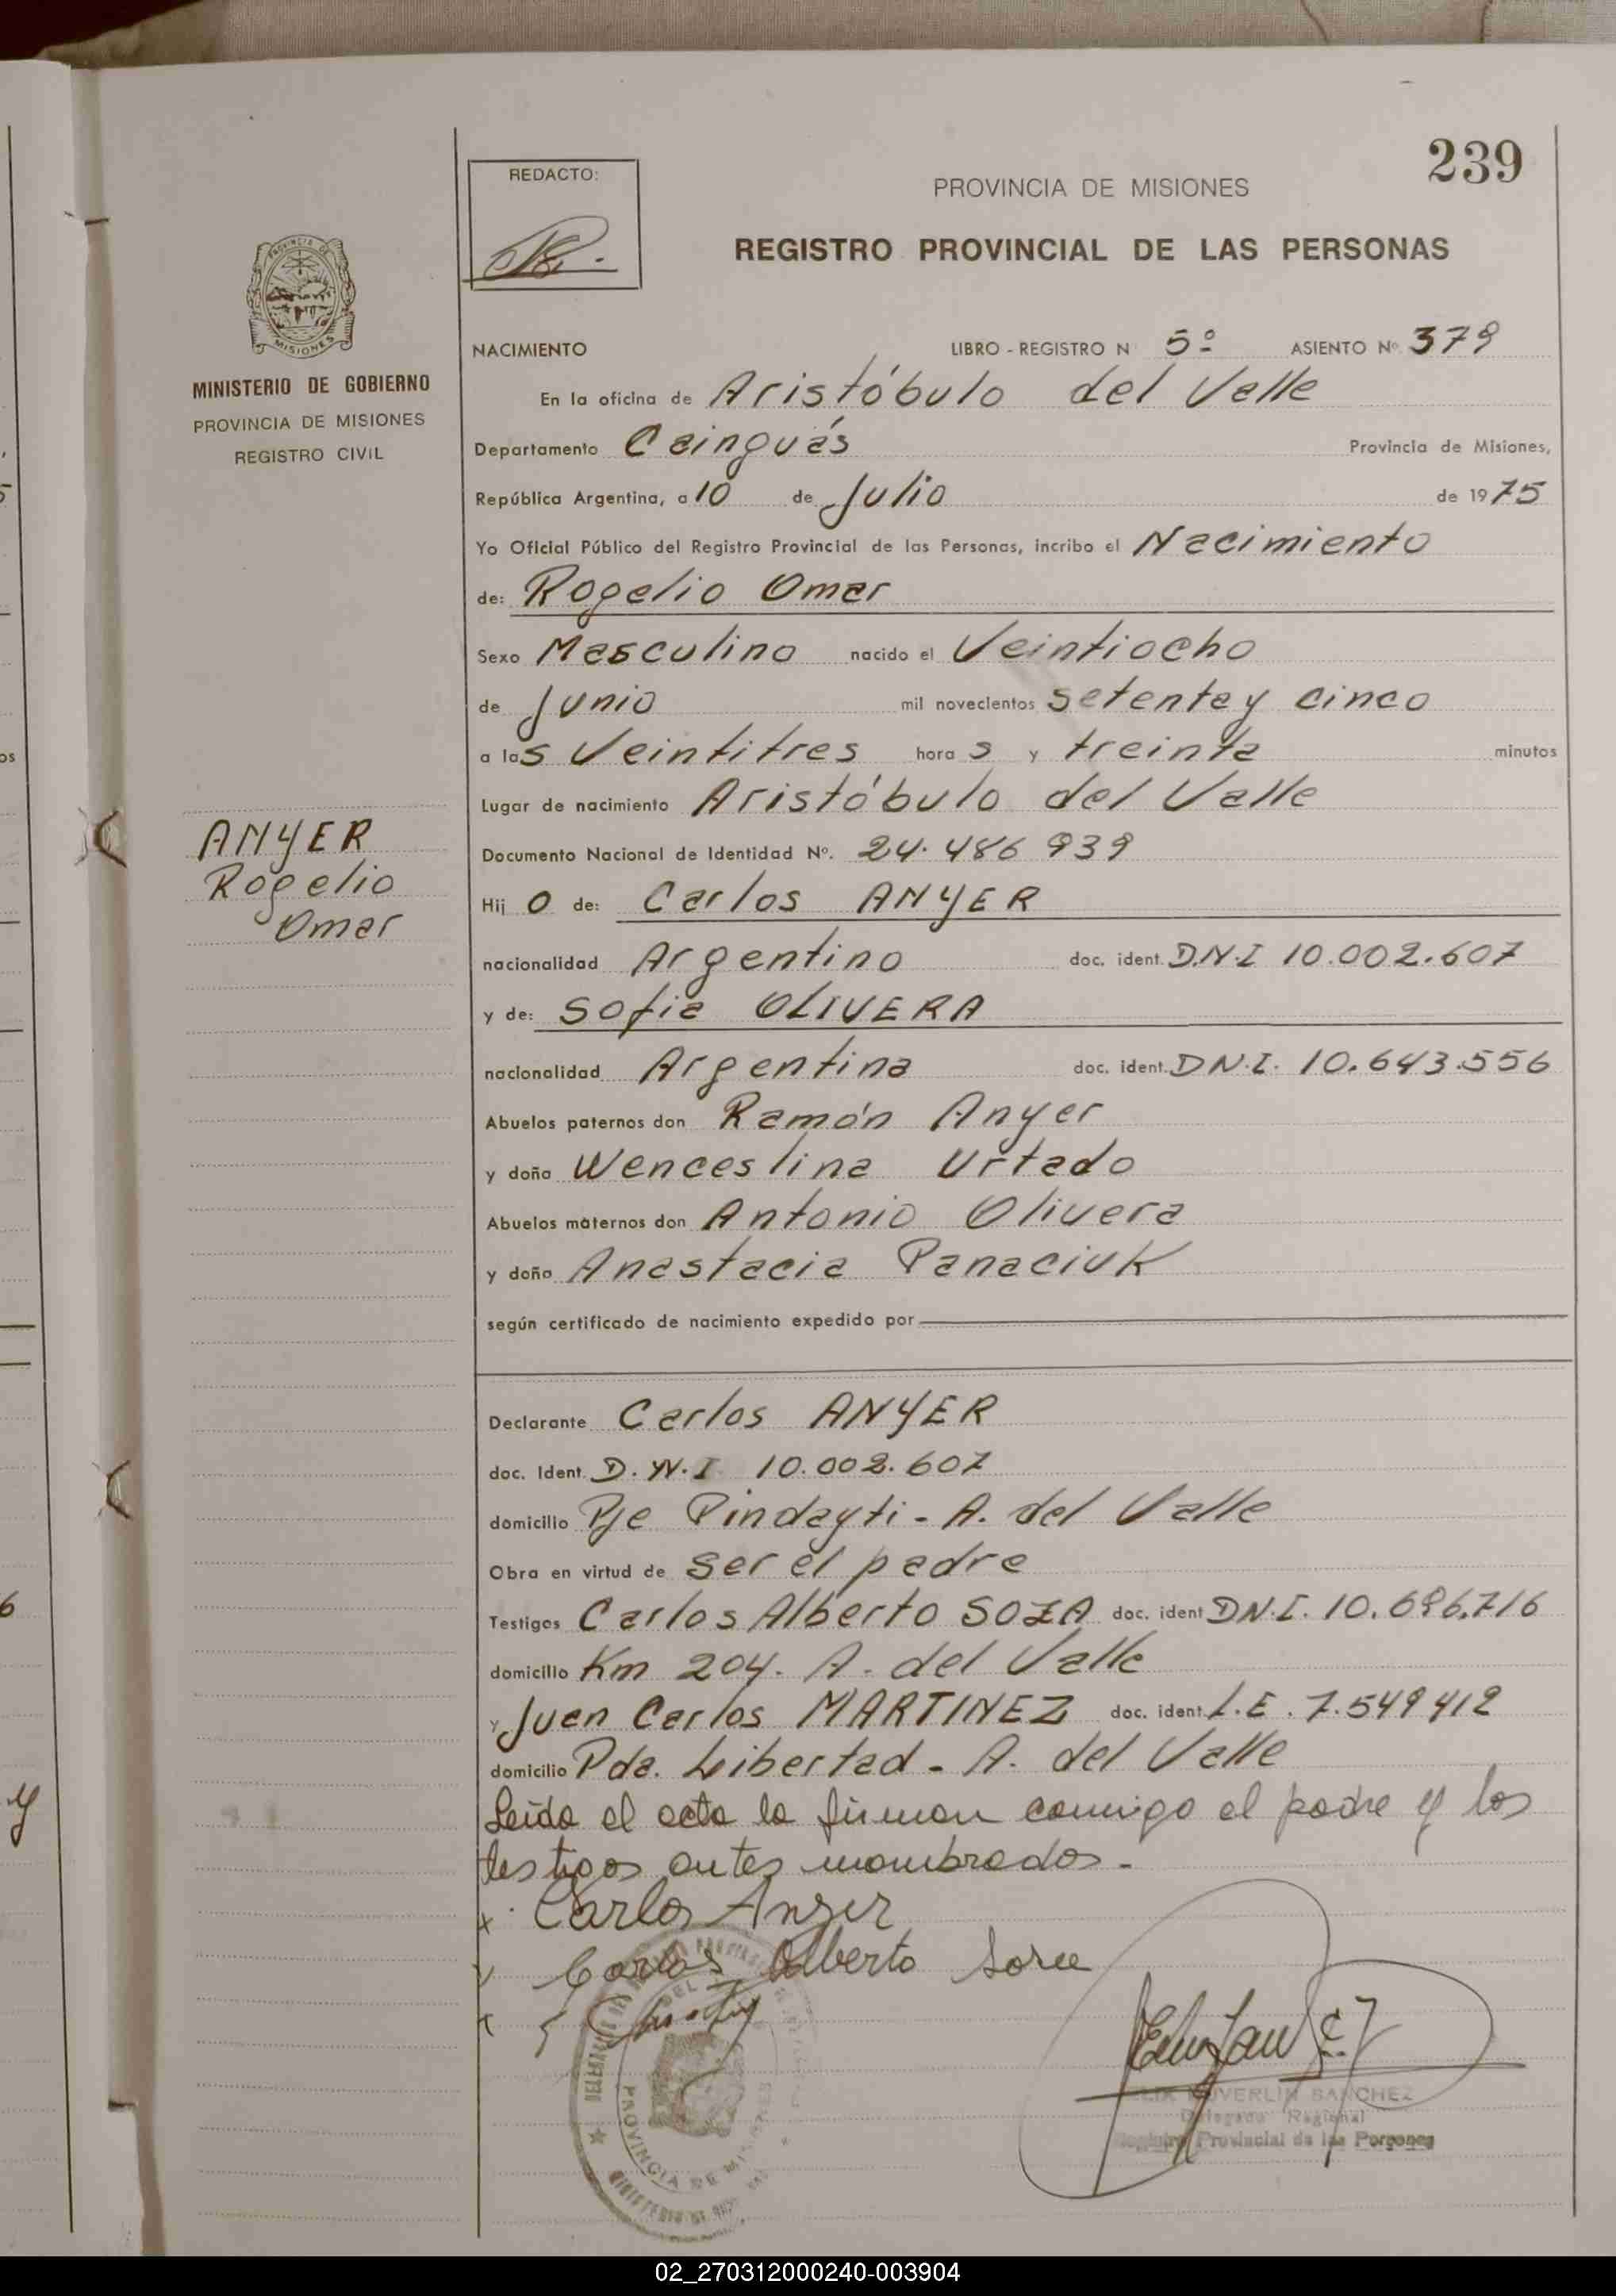 239
REDACTO:
PROVINCIA DE MISIONES
REGISTRO PROVINCIAL DE LAS PERSONAS
PROVINCIA DE
MISIONES
MINISTERIO DE GOBIERNO
PROVINCIA DE MISIONES
REGISTRO CIVIL
NACIMIENTO LIBRO - REGISTRO N 5º ASIENTO Nº 379
En la oficina de Aristóbulo del Valle
Departamento Cainguás Provincia de Misiones,
República Argentina, a 10 de Julio de 1975
Yo Oficial Público del Registro Provincial de las Personas, incribo el Nacimiento
de: Rogelio Omar
Sexo Masculino nacido el Veintiocho
de Junio mil novecientos setenta y cinco
a las Veintitres horas y treinta minutos
Lugar de nacimiento Aristóbulo del Valle
Documento Nacional de Identidad Nº. 24.486 939
ANYER
Rogelio
Omar
Hijo de: Carlos ANYER
nacionalidad Argentino doc. ident. D.N.I 10.002.607
y de: Sofia OLIVERA
nacionalidad Argentina doc. ident. DN.I. 10.643.556
Abuelos paternos don Ramón Anyer
y doña Wenceslina Urtado
Abuelos maternos don Antonio Olivera
y doña Anastacia Panaciuk
según certificado de nacimiento expedido por
Declarante Carlos ANYER
doc. Ident. D.N.I 10.002.607
domicilio Pje Pindayti - A. del Valle
Obra en virtud de ser el padre
Testigos Carlos Alberto SOZA doc. ident DN.I. 10.696.716
domicilio Km 204. A. del Valle
y Juan Carlos MARTINEZ doc. ident. L.E. 7.549 412
domicilio Pda. Libertad - A. del Valle
Leida el acta la firman conmigo el padre y los
testigos antes nombrados.-
x Carlos Anyer
Carlos Alberto
PROVINCIA DE
SANCHEZ
Delegado Regional
Registro Provincial de las Personas
02_270312000240-003904